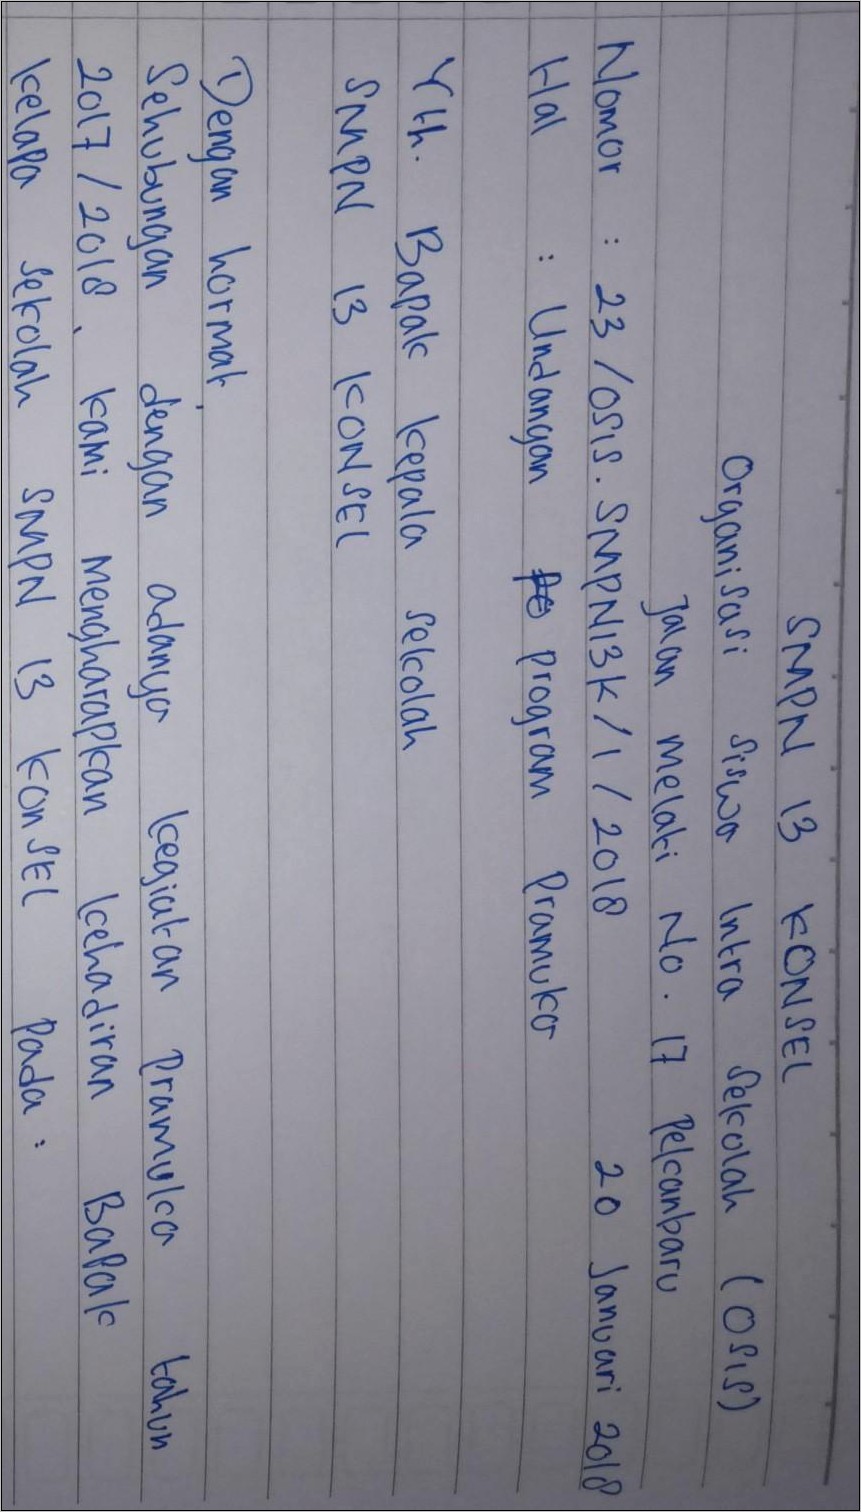 SMPN 13 KONSEL
Organisasi Siswa Intra Sekolah (OSIS)
Jalan melati No. 17 Pekanbaru
Nomor : 23/OSIS.SMPN13K/1/2018 20 Januari 2018
Hal : Undangan program Pramuka
Yth. Bapak kepala sekolah
SMPN 13 KONSEL
Dengan hormat,
Sehubungan dengan adanya kegiatan Pramuka tahun
2017/2018, kami mengharapkan kehadiran Bapak
kelapa sekolah SMPN 13 KonSEL Pada :